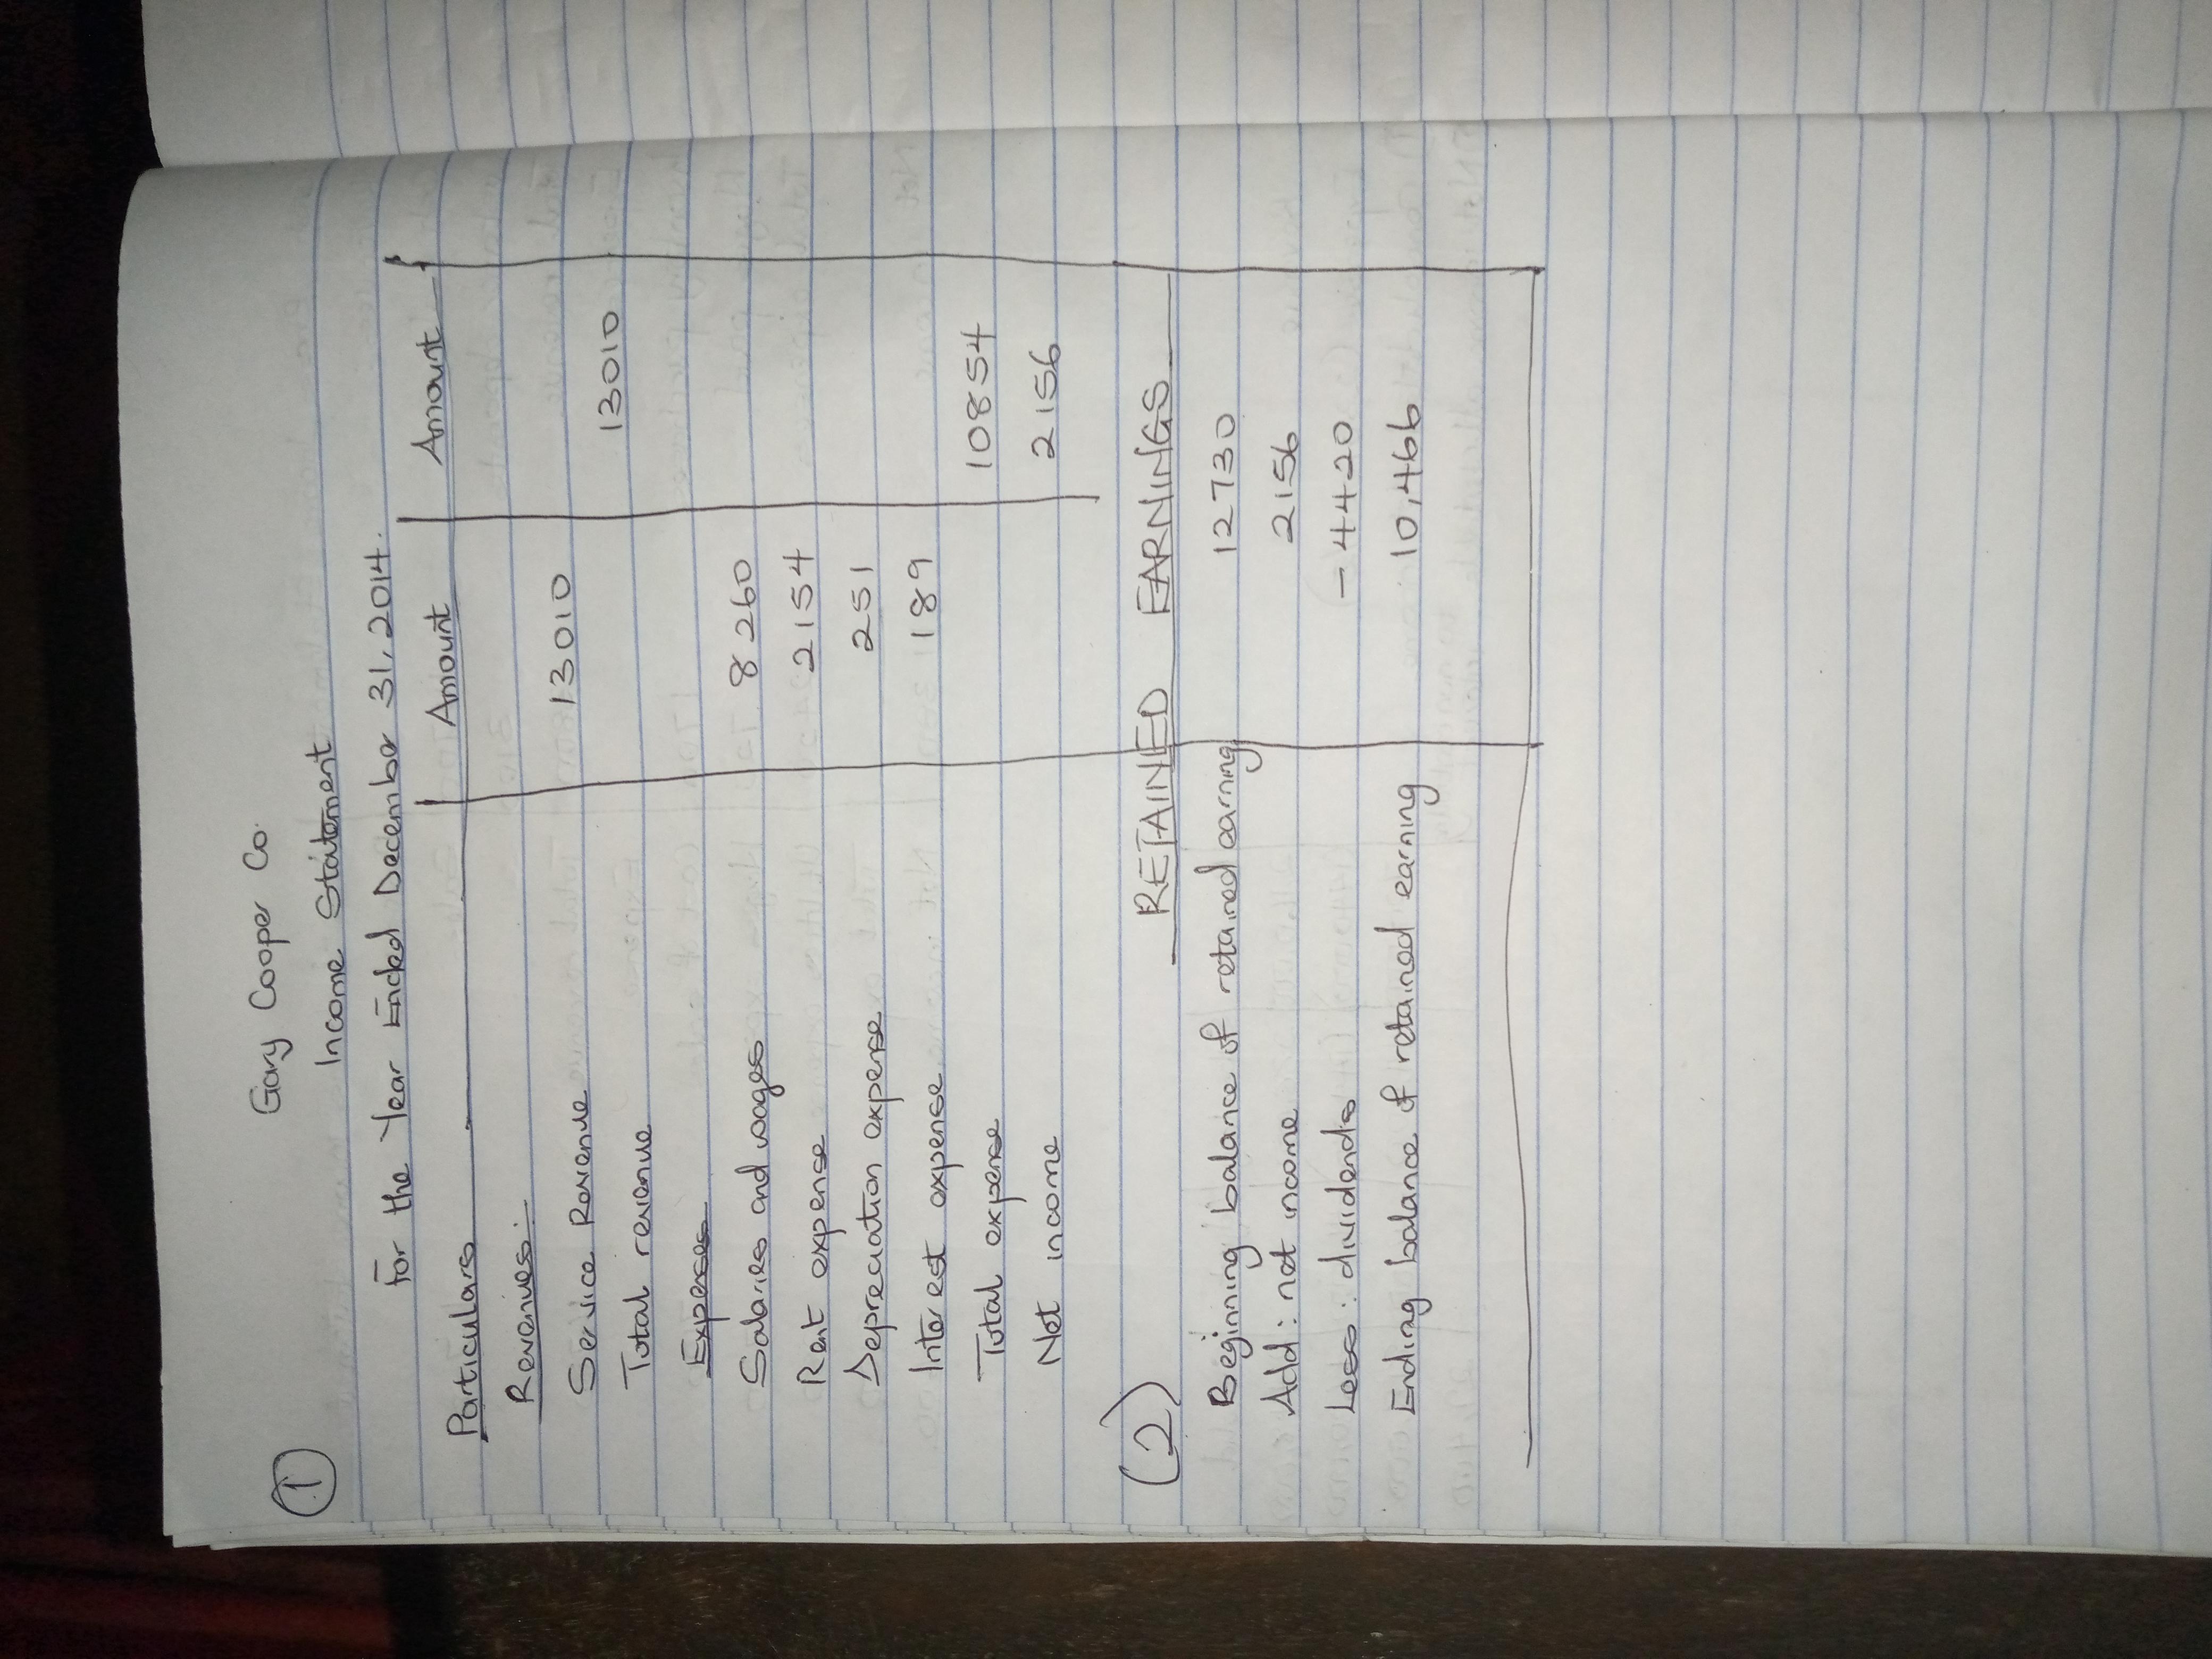 1
Gary Cooper Co.
Income Statement
For the Year Ended December 31, 2014.
Particulars Amount Amount
Revenues:
Service Revenue 13010
Total revenue 13010
Expenses
Salaries and wages 8260
Rent expense 2154
Depreciation expense 251
Interest expense 189
Total expense 10854
Net income 2156
(2) RETAINED EARNINGS
Beginning balance of retained earning 12730
Add: net income 2156
Less: dividends - 4420
Ending balance of retained earning 10,466